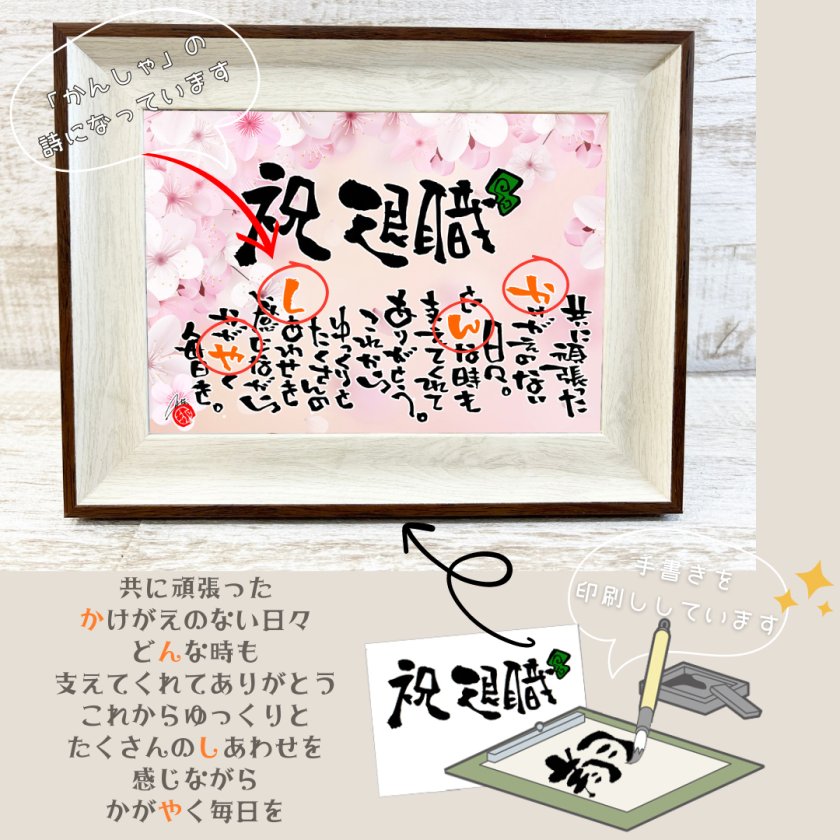 「かんしゃ」の
詩になっています
祝 退職
共に頑張った
かけがえのない
日々。
どんな時も
支えてくれて
ありがとう。
これから
ゆっくりと
たくさんの
しあわせを
感じながら
かがやく
毎日を。
共に頑張った
かけがえのない日々
どんな時も
支えてくれてありがとう
これからゆっくりと
たくさんのしあわせを
感じながら
かがやく毎日を
手書きを
印刷ししています
祝 退職